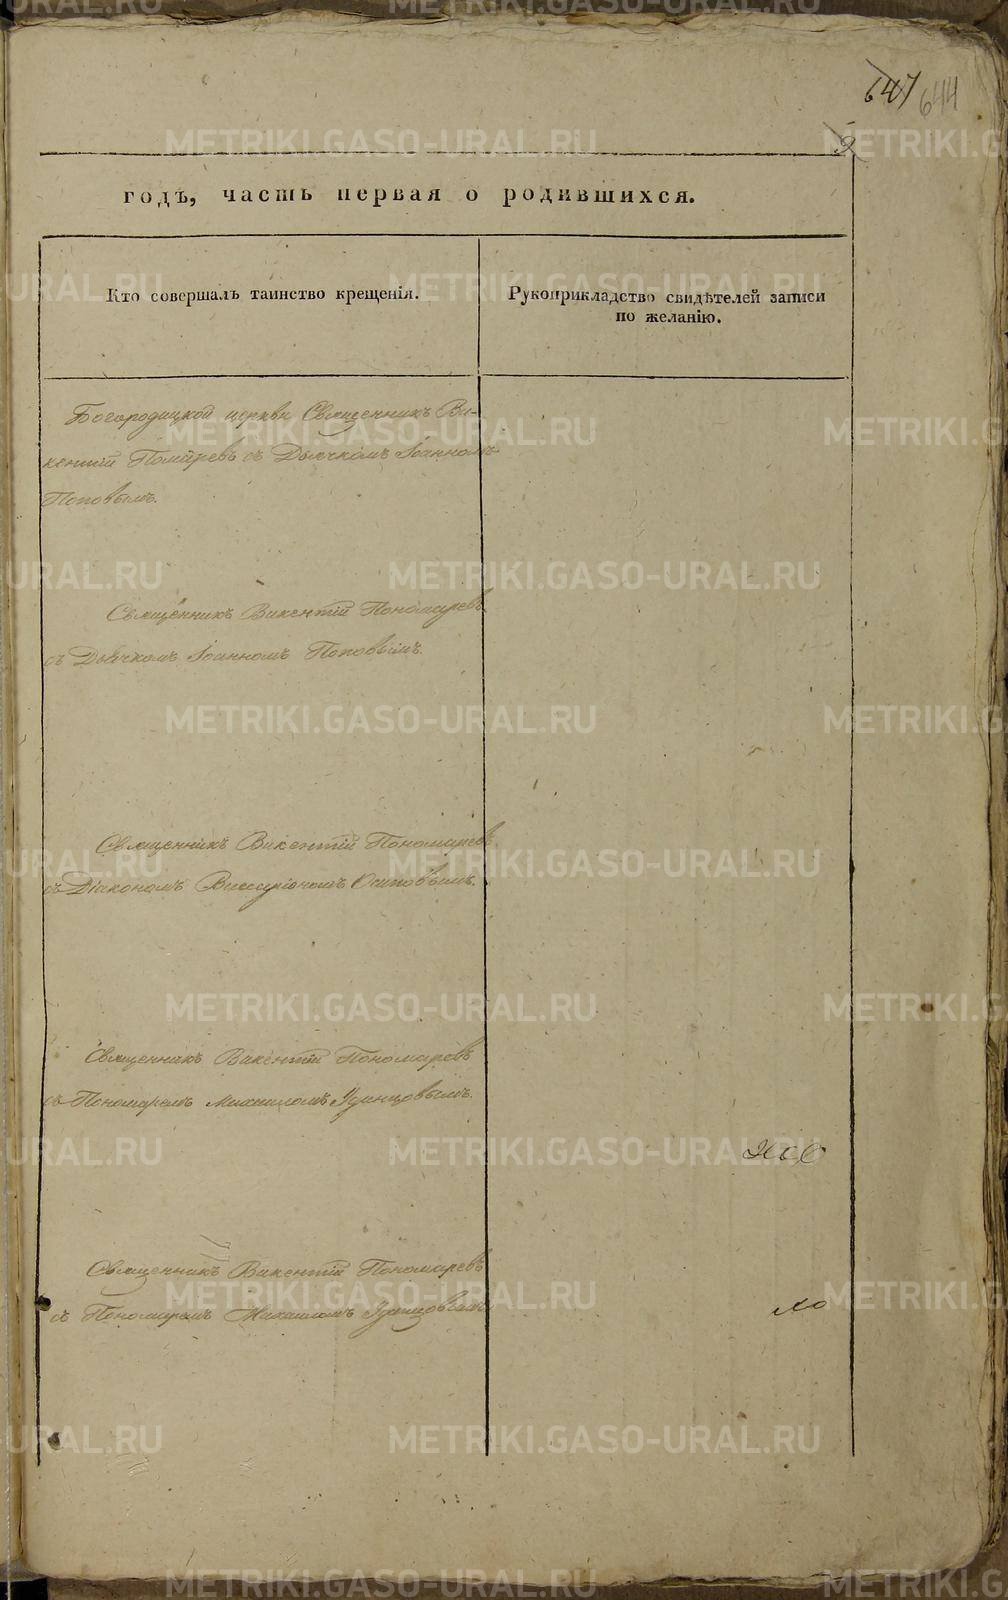 647 644
годъ, часть первая о родившихся.
Кто совершалъ таинство крещенія.
Рукоприкладство свидѣтелей записи
по желанію.
Богородицкой церкви Священникъ Ви-
кентій Пономаревъ съ Дьячкомъ Іоанномъ
Поповымъ.
Священникъ Викентій Пономаревъ
съ Дьячкомъ Іоанномъ Поповымъ.
Священникъ Викентій Пономаревъ
съ Діакономъ Виссаріономъ Осиповымъ.
Священникъ Викентій Пономаревъ
съ Пономаремъ Михаиломъ Удинцовымъ.
Священникъ Викентій Пономаревъ
съ Пономаремъ Михаиломъ Удинцовымъ.
METRIKI.GASO-URAL.RU